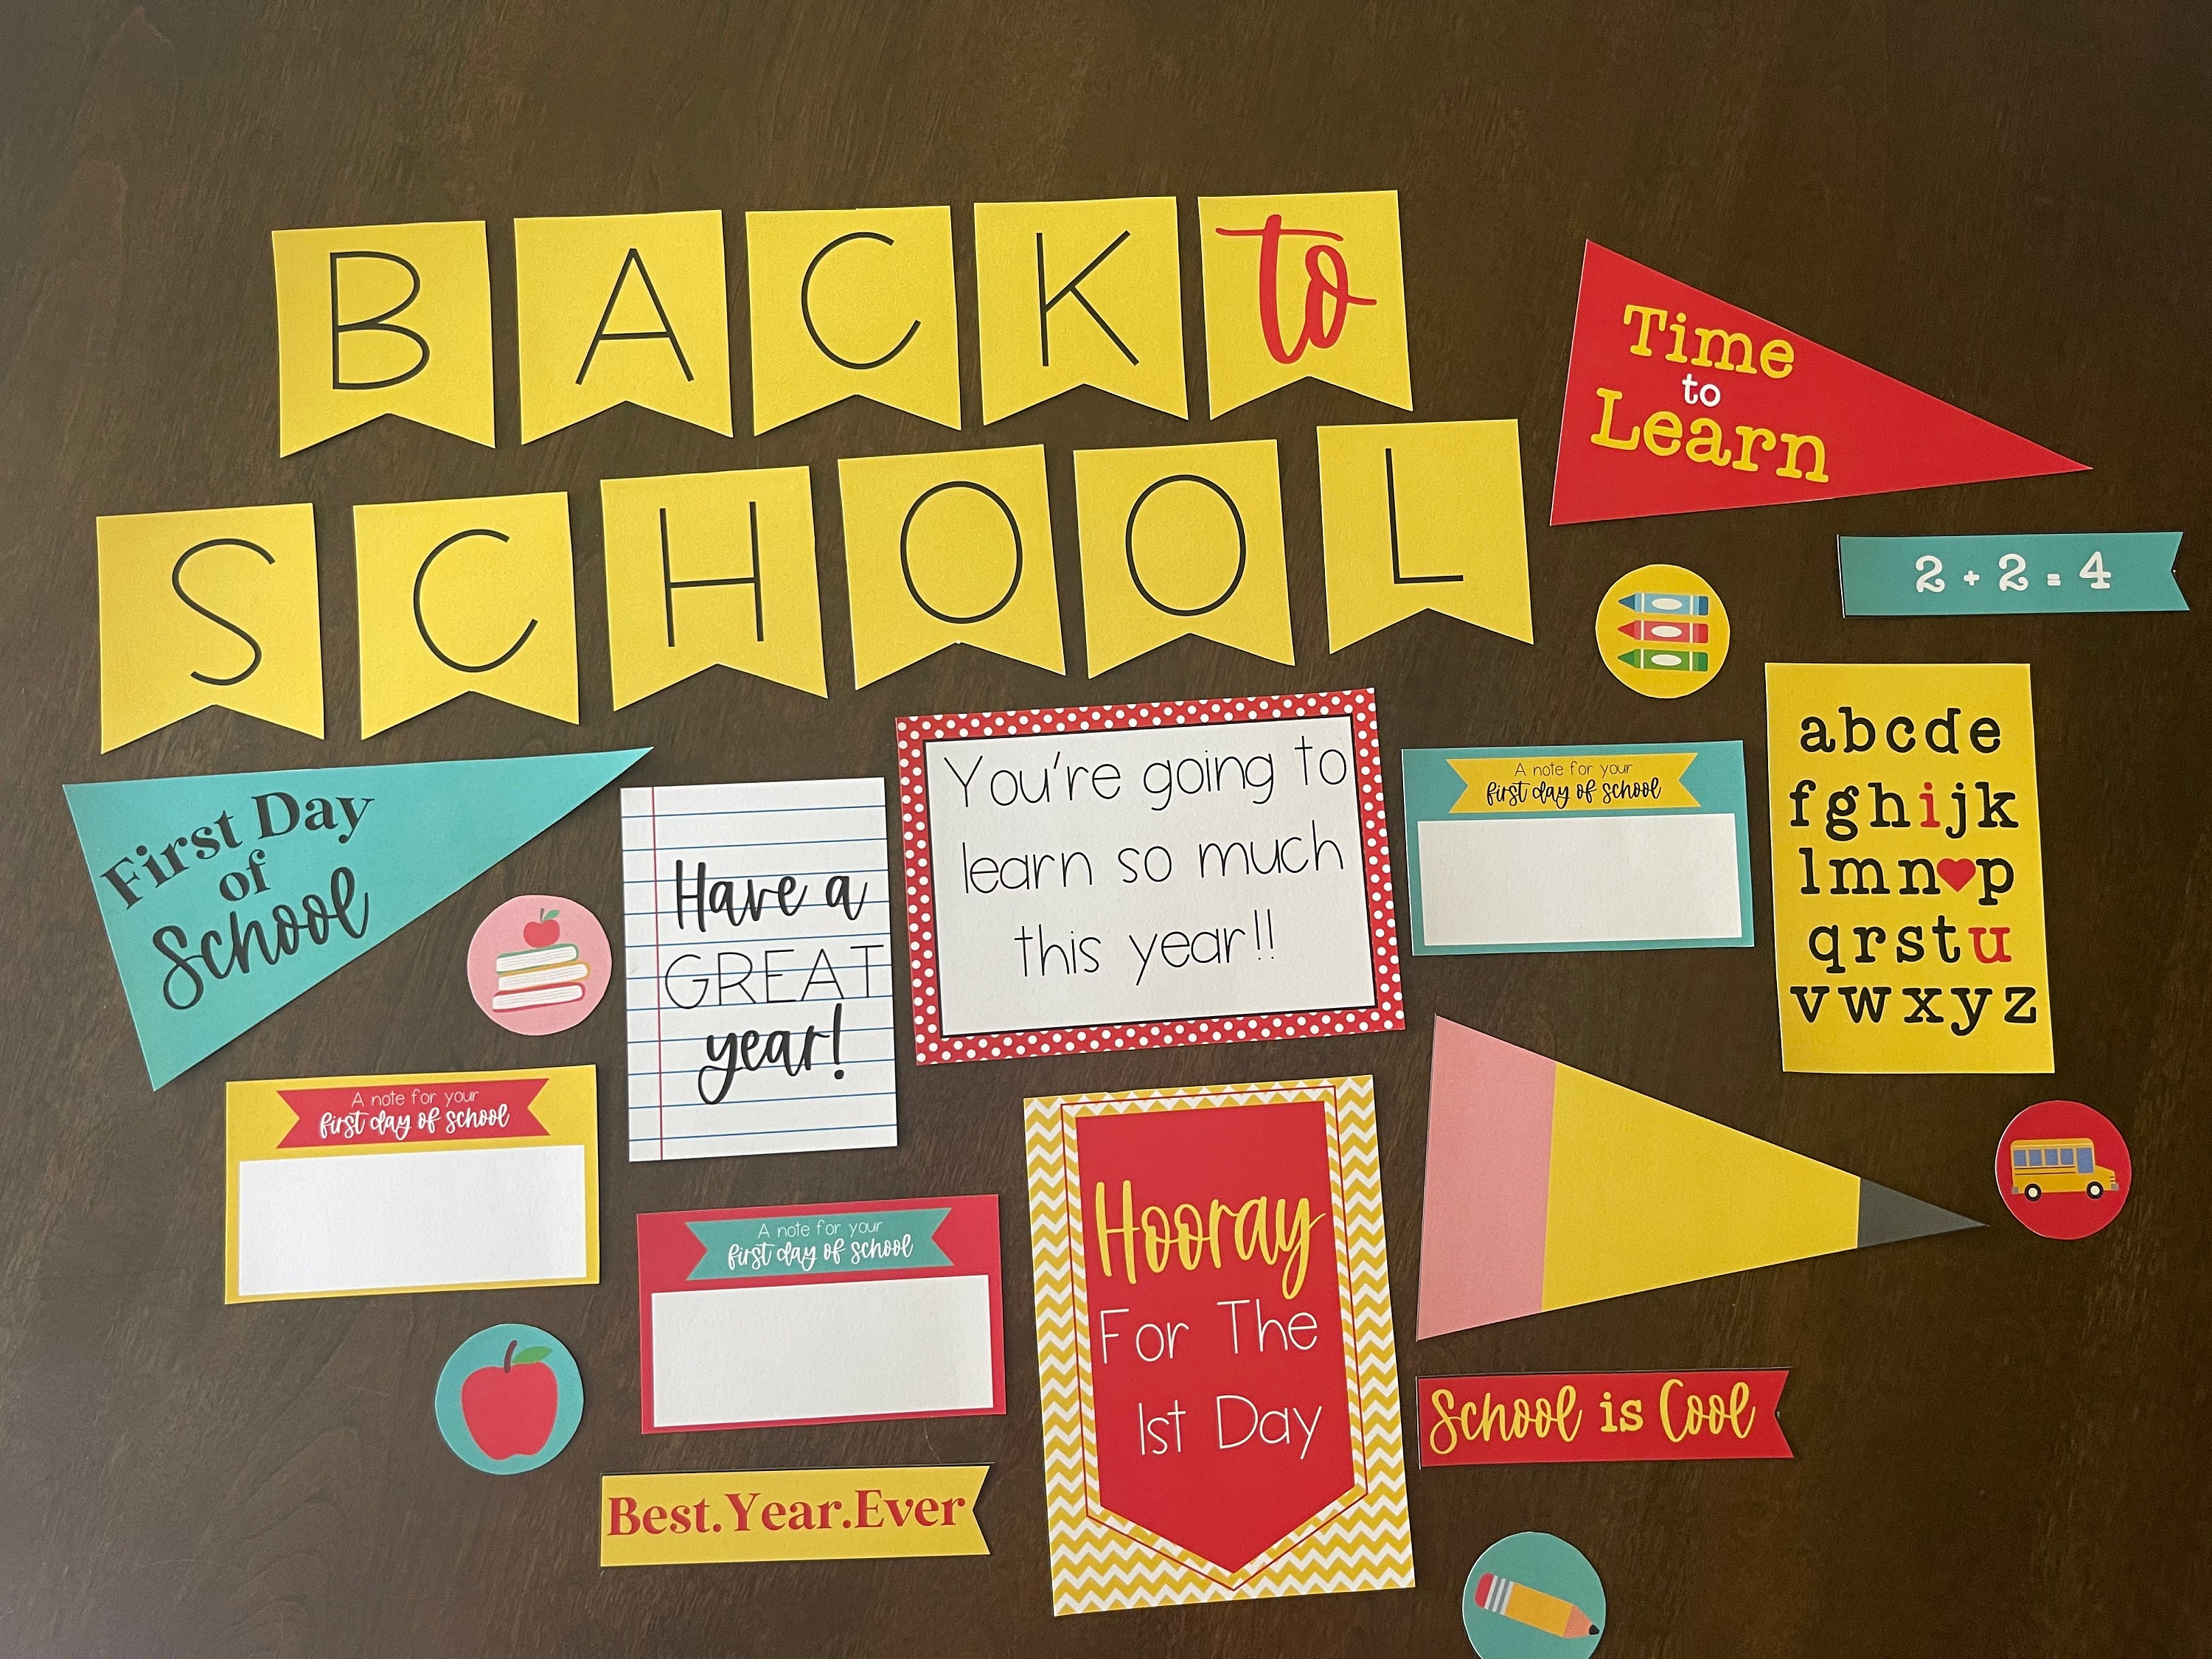 BACK to
SCHOOL
Time
to
Learn
2 + 2 = 4
First Day
of
School
Have a
GREAT
year!
You're going to
learn so much
this year!!
A note for your
first day of school
abcde
fghijk
lmn♥p
qrstu
vwxyz
A note for your
first day of school
A note for your
first day of school
Hooray
For The
1st Day
School is Cool
Best.Year.Ever